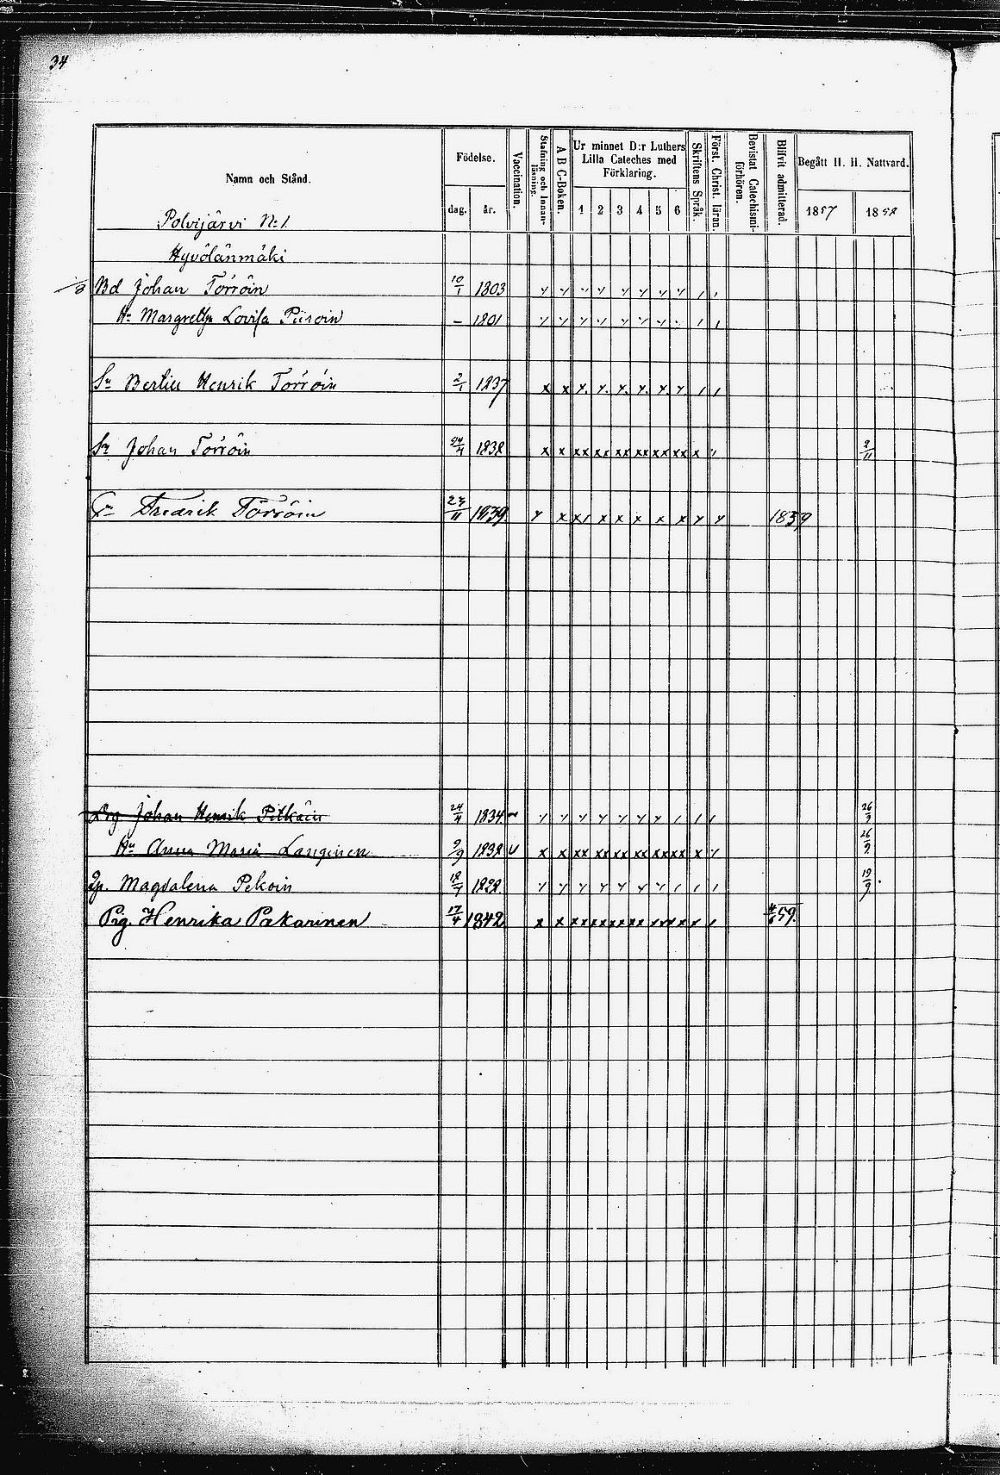 34
Namn och Stånd.
Födelse.
dag. år.
Vaccination.
Stafning och Innanläsning.
A B C-Boken.
Ur minnet D:r Luthers Lilla Cateches med Förklaring.
1 2 3 4 5 6
Skriftens Språk.
Först. Christ. läran.
Bevistat Catechismiförhören.
Blifvit admitterad.
Begått H. H. Nattvard.
1857 1858
Polvijärvi No 1.
Hyvölänmäki
Bd Johan Törröin 10/1 1803
Hu Margretha Lovisa Piiroin – 1801
Sn Bertill Henrik Törröin 2/1 1837
Sn Johan Törröin 24/4 1832 2/11
Sn Fredrik Törröin 23/11 1839 1859
Drg Johan Henrik Pitkäin 24/4 1834 26/9
Hu Anna Maria Langinen 9/9 1832 26/9
Magdalena Pekoin 12/7 1822 19/9
Pig. Henrika Pakarinen 17/4 1842 4/6 59.